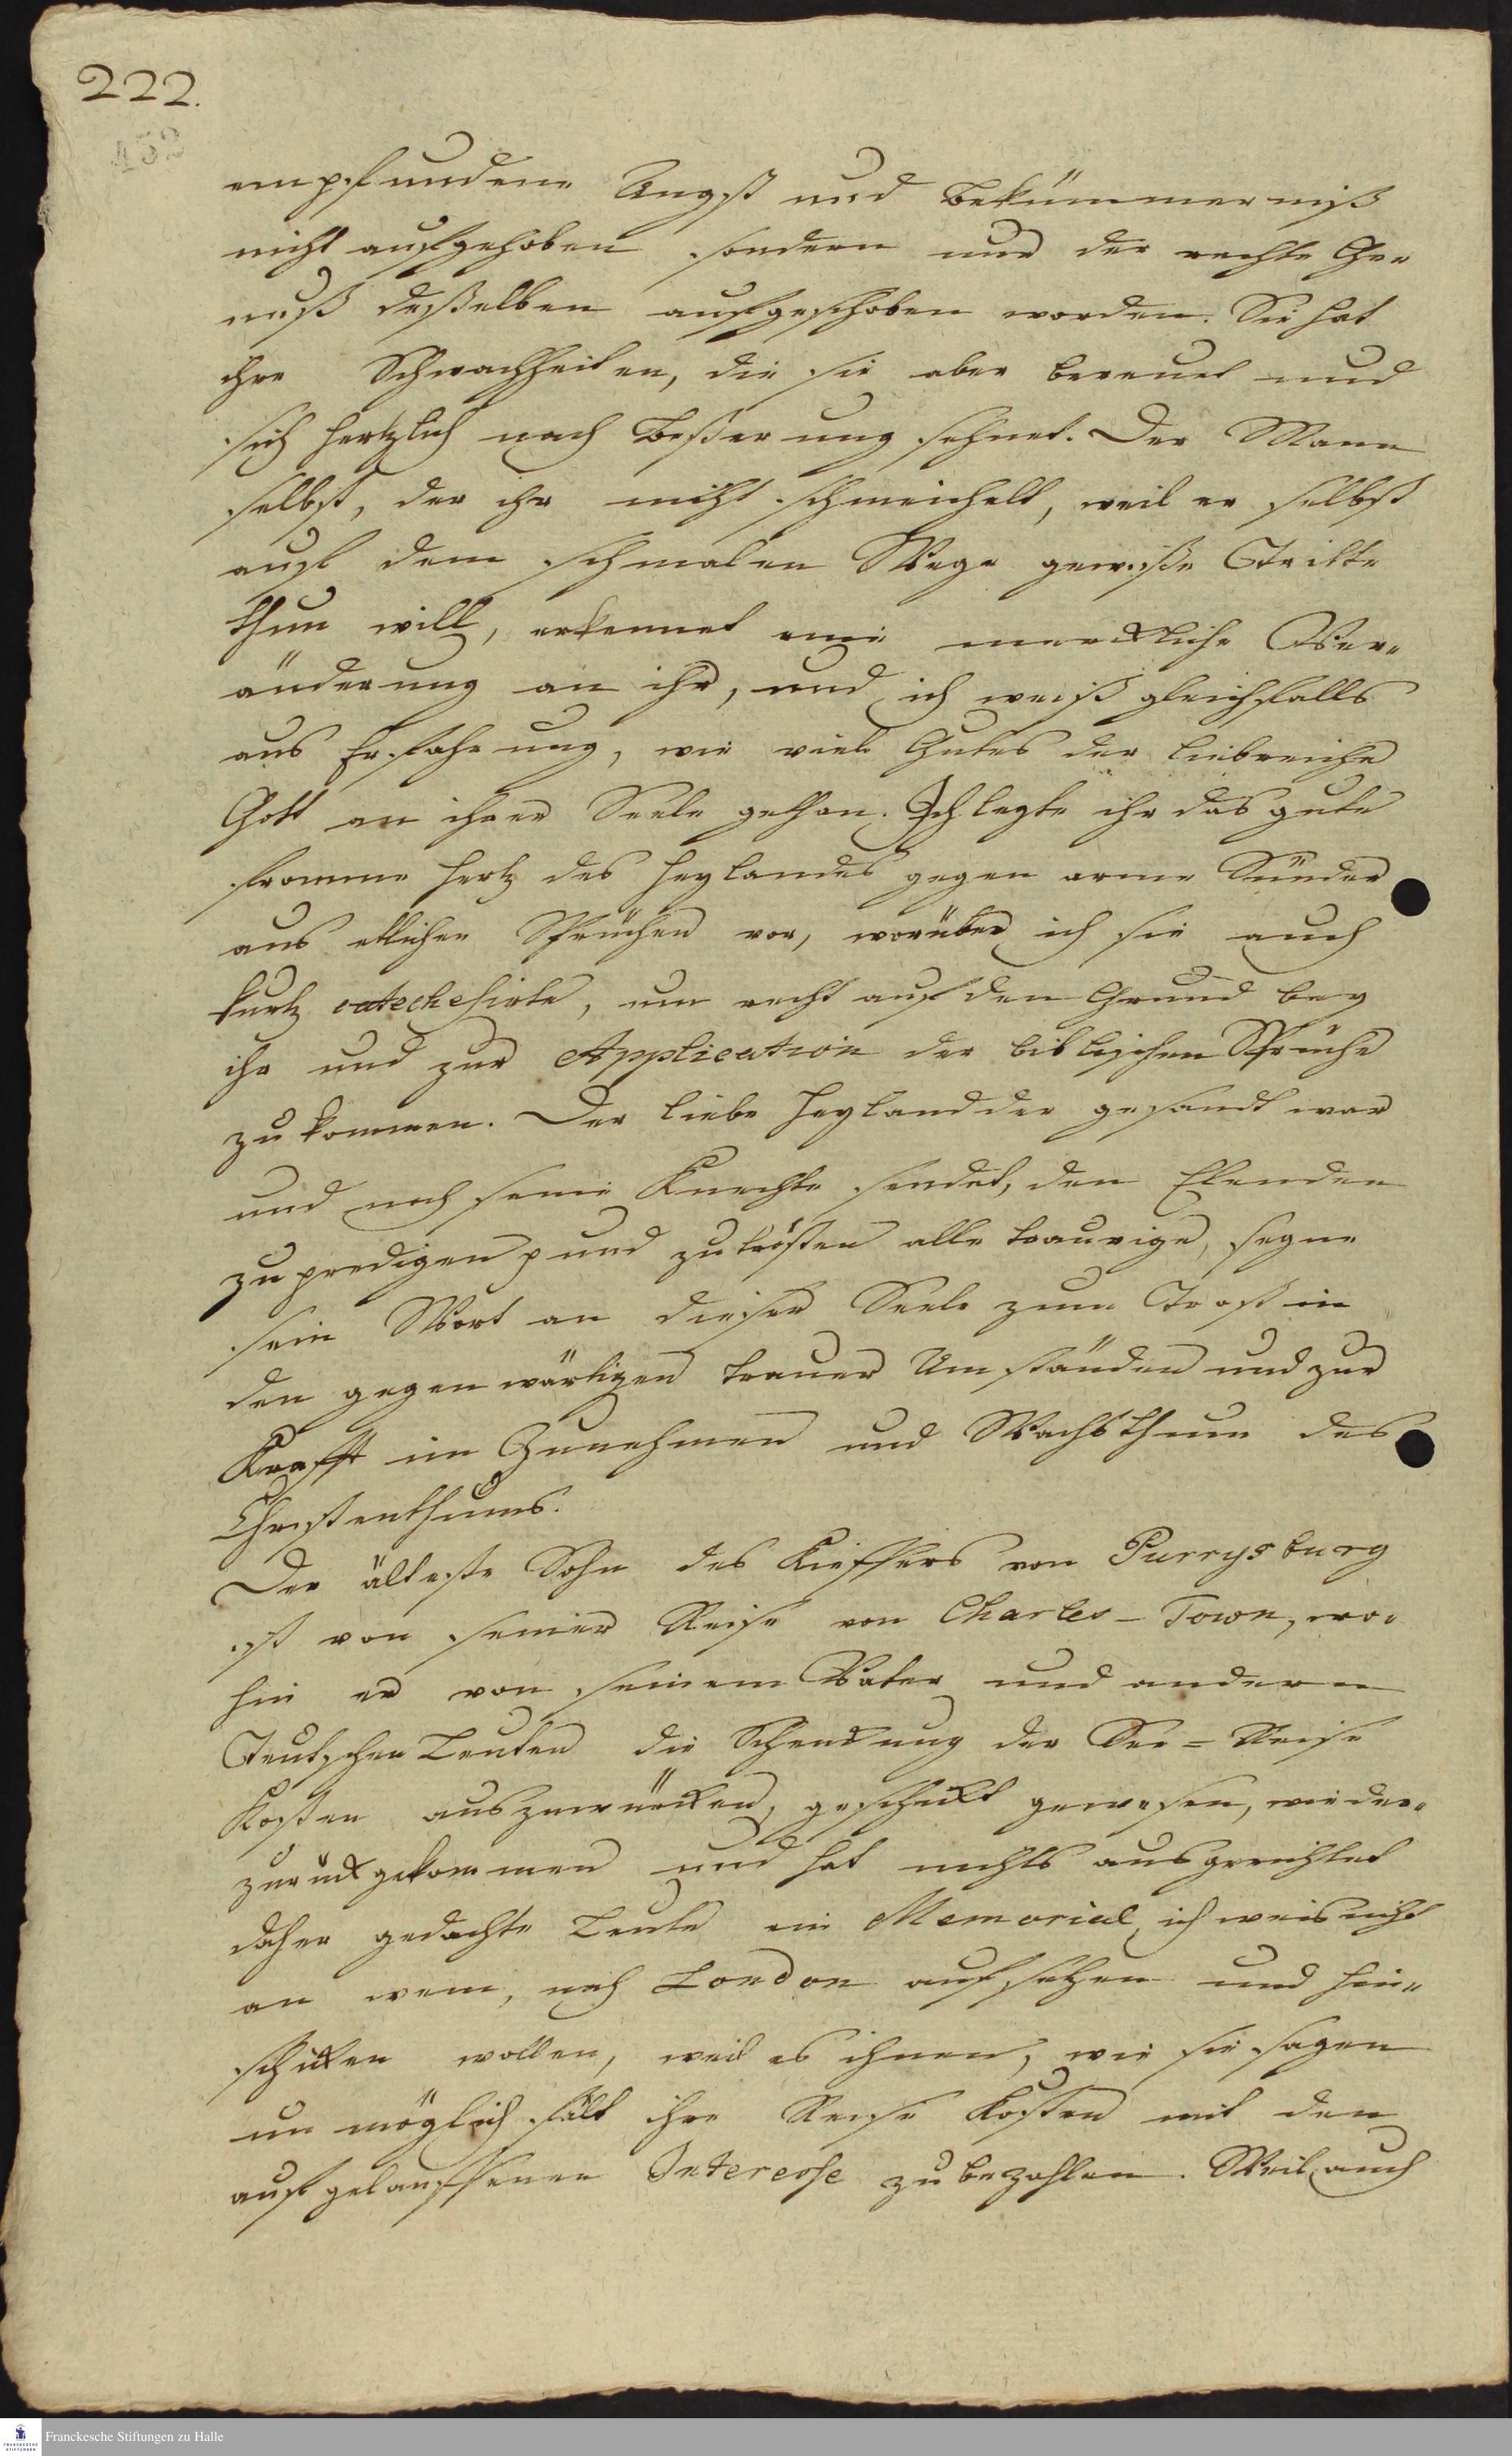 222.
452
empfundene Angst und Bekümmerniß
nicht aufgehoben sondern nur der rechte Ge-
nuß deßelben aufgeschoben worden. Sie hat
ihre Schwachheiten, die sie aber bereuet und
sich hertzlich nach Beßerung sehnet. Der Mann
selbst, der ihr nicht schmeichelt, weil er selbst
auf dem schmalen Wege gewiße Tritte
thun will, erkennet eine merckliche Ver-
änderung an ihr, und ich weiß gleichfalls
aus Erfahrung, wie viele Gutes der liebreiche
Gott an ihrer Seele gethan. Ich legte ihr das gute
fromme Hertz des Heylandes gegen arme Sünder
aus etlichen Sprüchen vor, worüber ich sie auch
kurtz catechesirte, um recht auf den Grund bey
ihr und zur Application der biblischen Sprüche
zu kommen. Der liebe Heyland der gesandt war
und noch seine Knechte sendet, den Elenden
zu predigen p und zu trösten alle traurige, segne
sein Wort an dieser Seele zum Trost in
den gegenwärtigen trauer Umständen und zur
Krafft im Zunehmen und Wachsthum des
Christenthums.
Der älteste Sohn des Kieffers von Purrysburg
ist von seiner Reise von Charles-Town, wo-
hin er von seinem Vater und andern
Teutschen Leuten die Schenckung der See-Reise
Kosten auszuwürcken, geschickt gewesen, wieder-
zurückgekommen und hat nichts ausgerichtet
daher gedachte Leute ein Memorial, ich weis nicht
an wem, nach London aufsetzen und hin-
schicken wollen, weil es ihnen, wie sie sagen
unmöglich fält ihre Reise Kosten mit den
aufgelauffenen Interesse zu bezahlen. Weil auch
Franckesche Stiftungen zu Halle